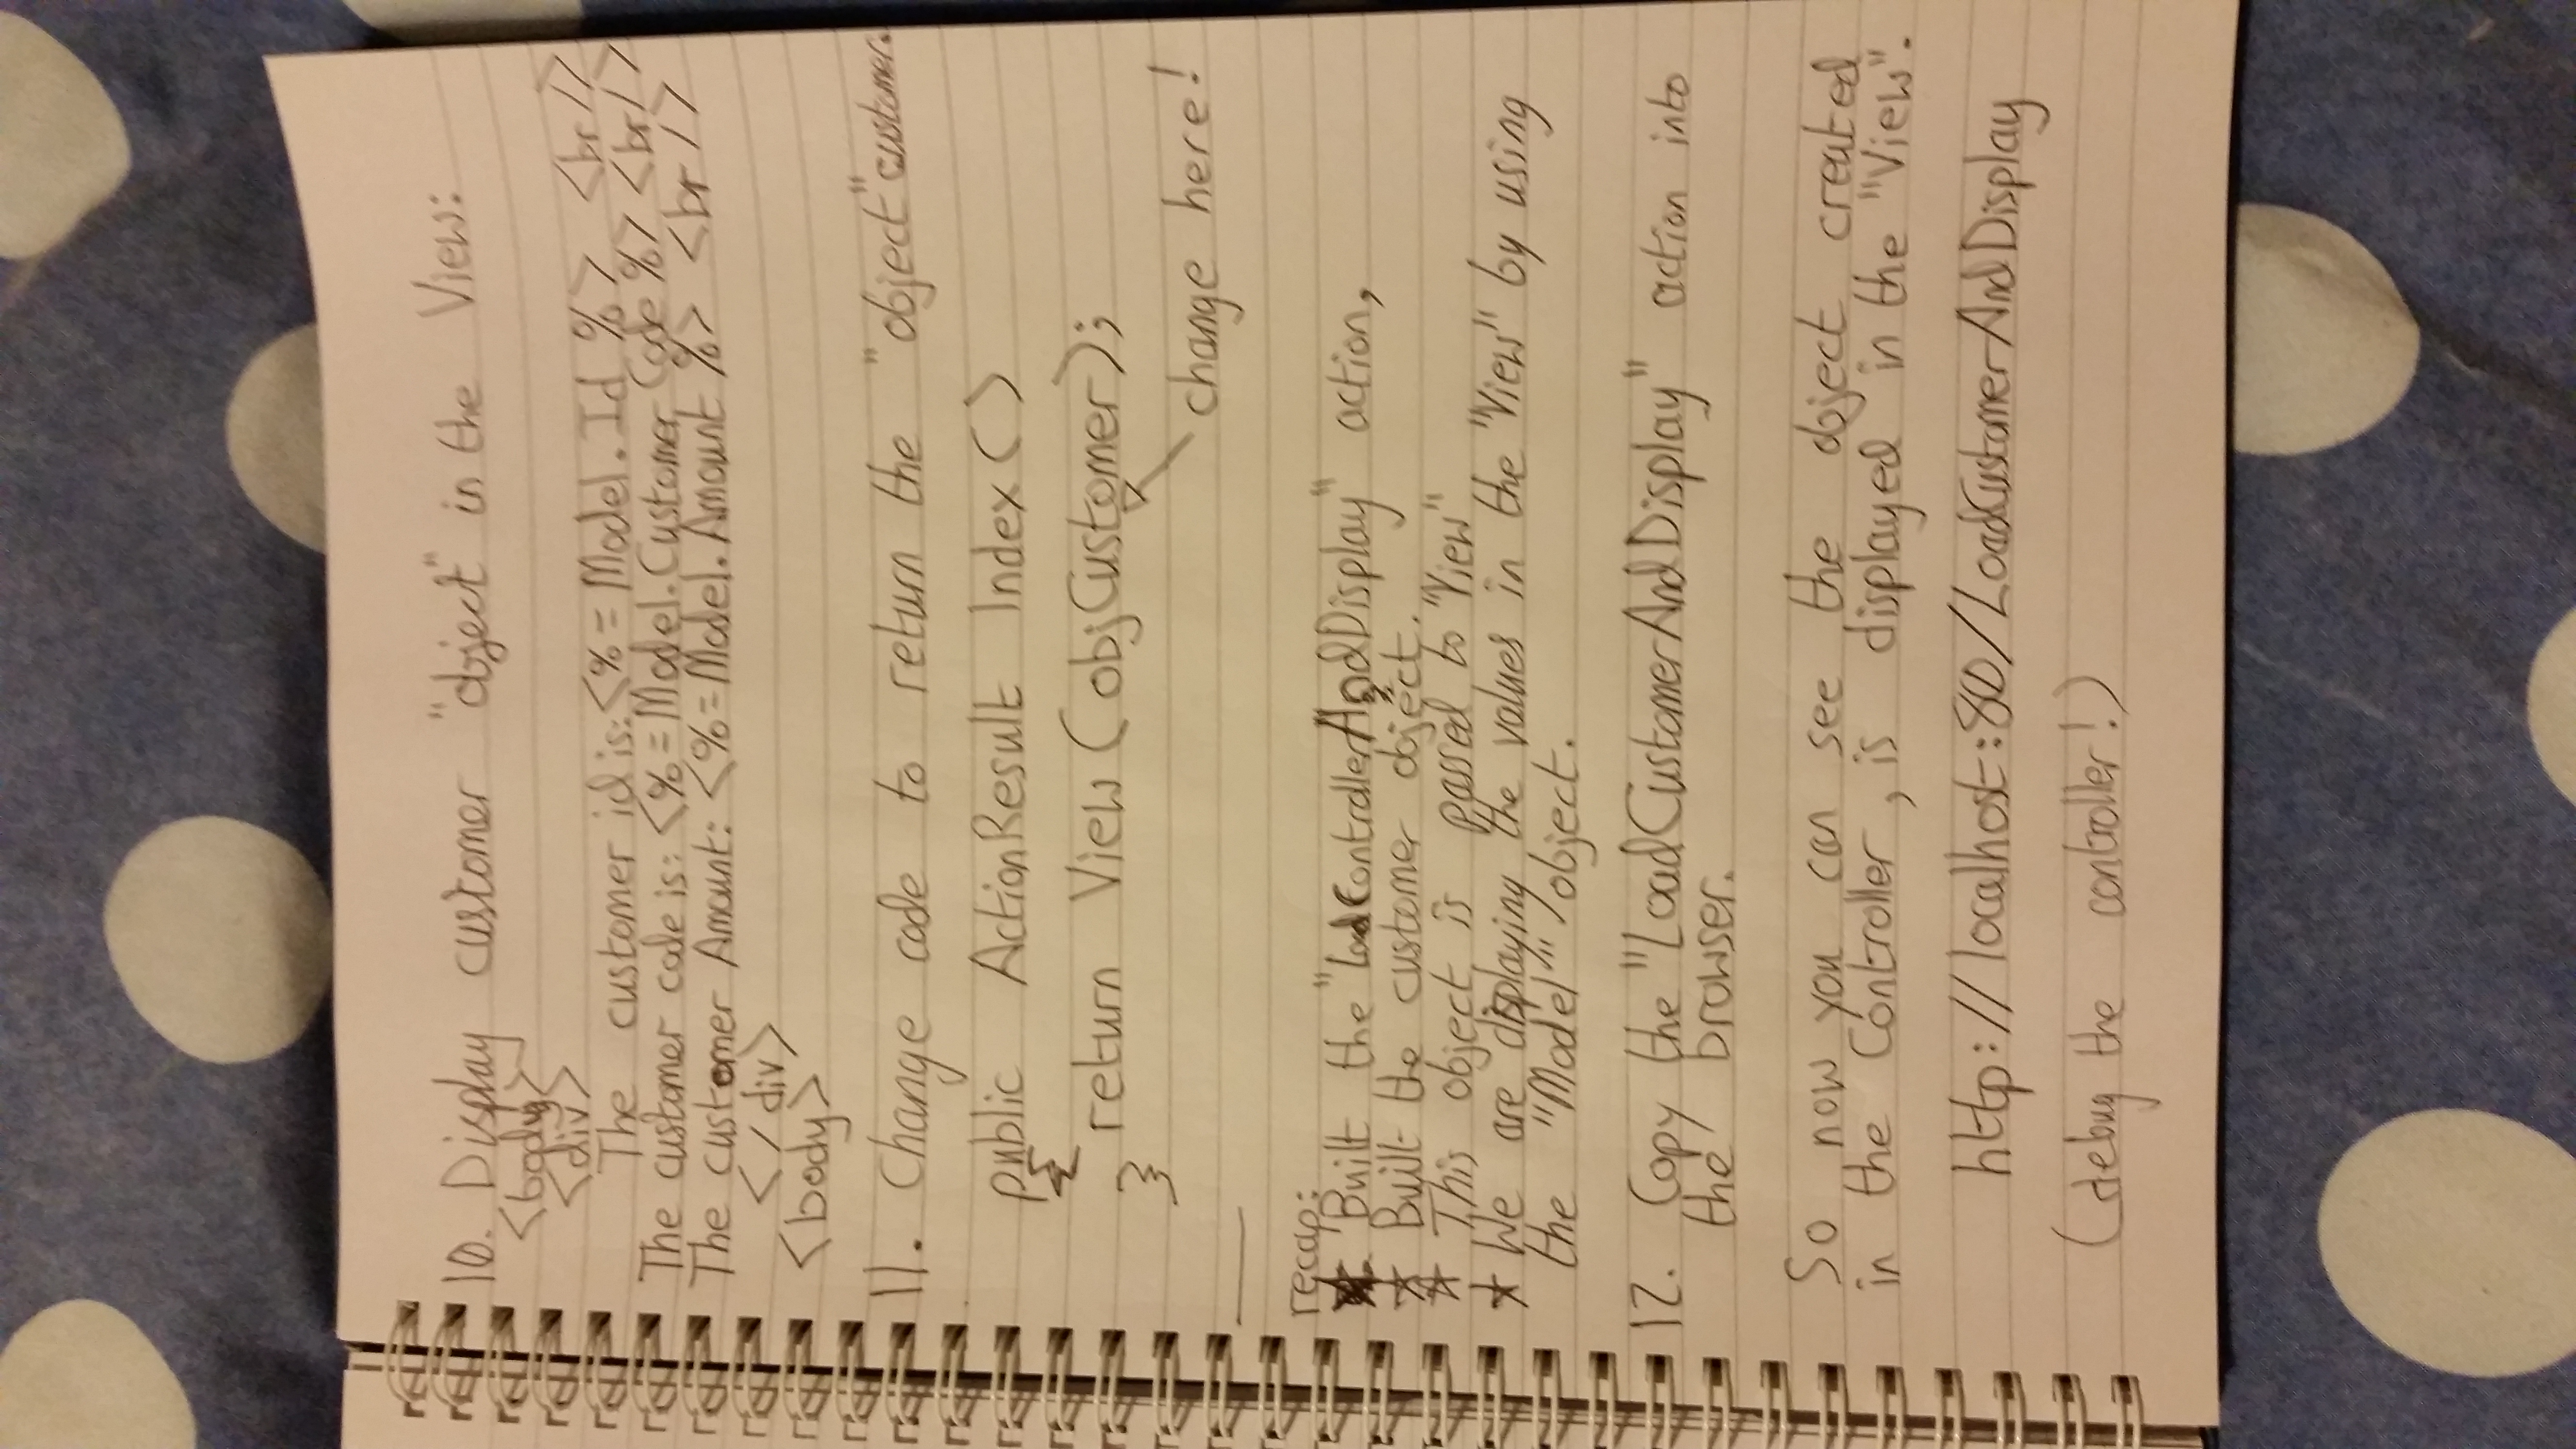 10. Display customer "object" in the View:
<body>
<div>
The customer id is: <%= Model.Id %> <br />
The customer code is: <%= Model.Customer Code %> <br />
The customer Amount: <%= Model.Amount %> <br />
</div>
<body>
11. Change code to return the "object" customer.
public ActionResult Index()
{
return View (objCustomer);
}
change here!
recap:
* Built the "LoadControllerAndDisplay" action,
* Built the customer object.
* This object is passed to "View"
* We are displaying the values in the "View" by using
the "Model" object.
12. Copy the "LoadCustomerAndDisplay" action into
the browser.
So now you can see the object created
in the Controller, is displayed in the "View".
http://localhost:80/LoadCustomerAndDisplay
(debug the controller!)